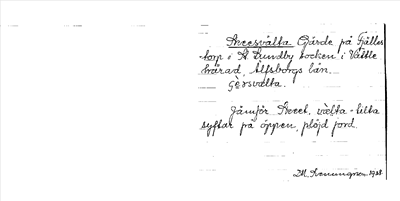 Geersvälta Gärde på Fjälls-
torp i St. Lundby socken i Vättle
härad, Älfsborgs län.
Gèrsvälta.
Jämför Geert. välta - lilta
syftar på öppen, plöjd jord.
1928